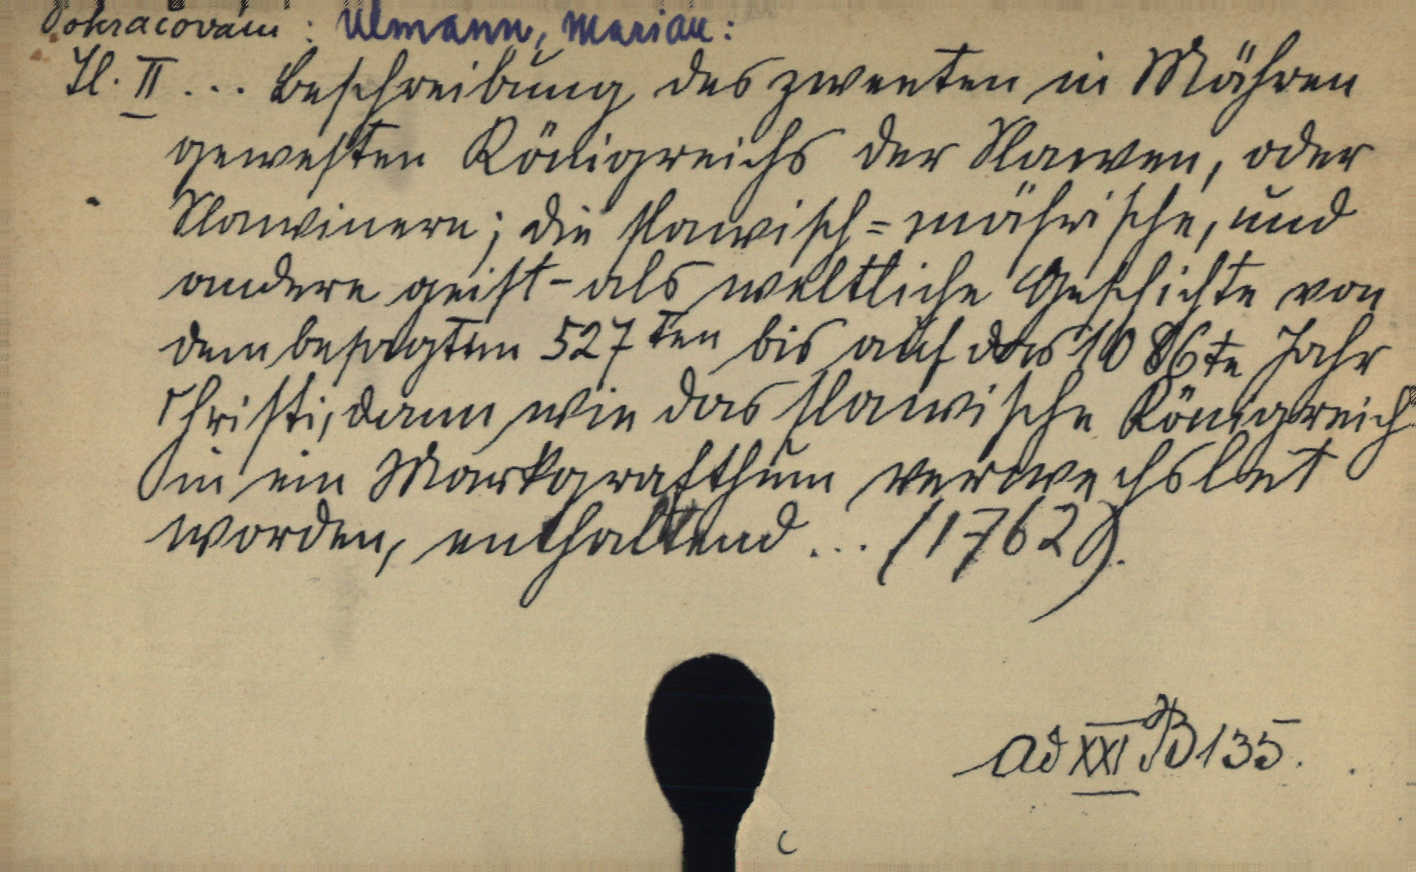 Pokračování: Ulmann, Marian:
Tl. II ... Beschreibung des zweyten in Mähren
gewesten Königreichs der Slawen, oder
Slawinern; die slawisch=mährische, und
andere geist- als weltliche Geschichte von
dem besagten 527ten bis auf das 1086te Jahr
Christi, dann wie das slawische Königreich
in ein Markgrafthum verwechslet
worden, enthaltend ... (1762).
ad XXI B 135.